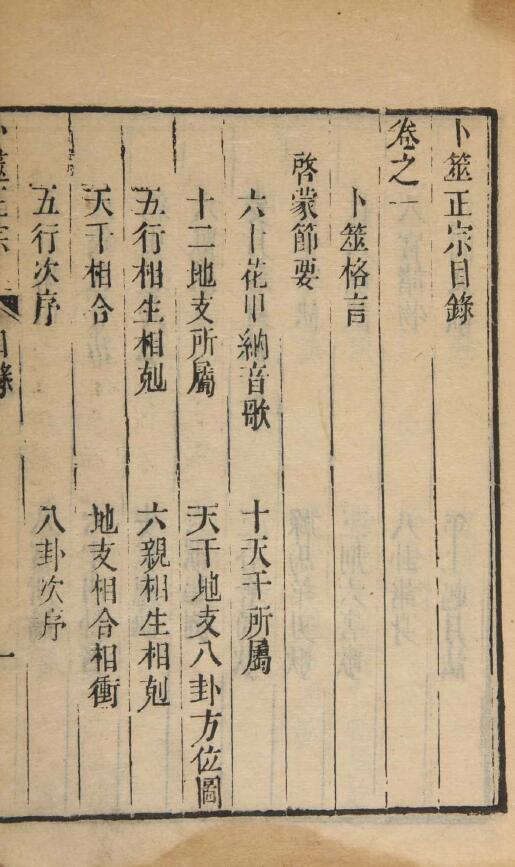 卜筮正宗目錄
卷之一
卜筮格言
啓蒙節要
六十花甲納音歌
十天干所屬
十二地支所屬
天干地支八卦方位圖
五行相生相剋
六親相生相剋
天干相合
地支相合相衝
五行次序
八卦次序
卜筮正宗
目錄
一